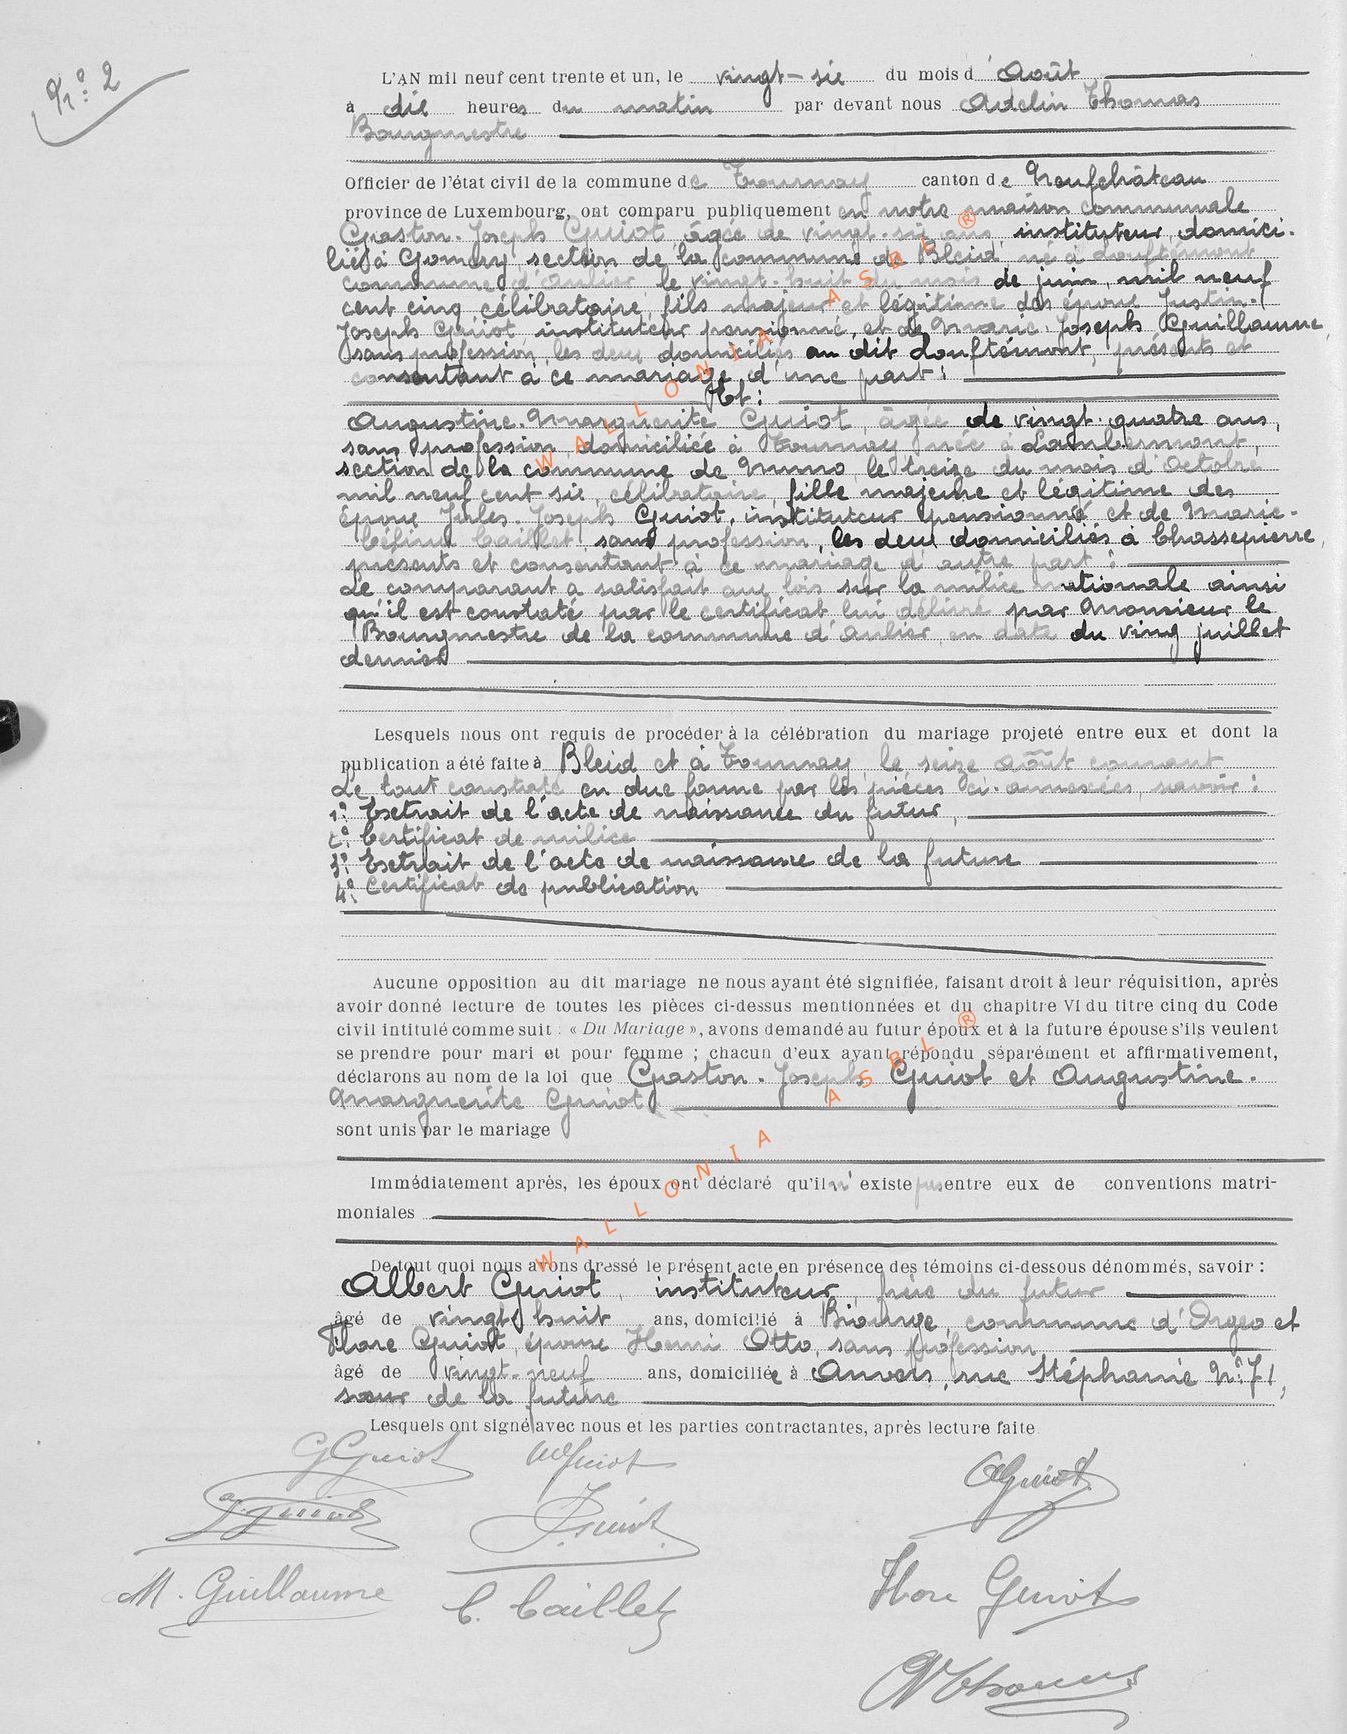 N° 2
L'AN mil neuf cent trente et un, le vingt-six du mois d'Août
à dix heures du matin par devant nous Adelin Thomas
Bourgmestre
Officier de l'état civil de la commune de Tournay canton de Neufchâteau
province de Luxembourg, ont comparu publiquement en notre maison communale
Gaston-Joseph Guiot âgé de vingt-six ans instituteur, domici-
lié à Gomery section de la commune de Bleid né à Louftémont
commune d'Anlier le vingt-huit du mois de juin, mil neuf
cent cinq célibataire, fils majeur et légitime des époux Justin-
Joseph Guiot, instituteur pensionné, et de Marie-Joseph Guillaume,
sans profession, les deux domiciliés au dit Louftémont, présents et
consentant à ce mariage d'une part;
Et:
Augustine-Marguerite Guiot, âgée de vingt-quatre ans,
sans profession, domiciliée à Tournay née à Lambermont,
section de la commune de Muno, le treize du mois d'Octobre
mil neuf cent six, célibataire, fille majeure et légitime des
époux Jules-Joseph Guiot, instituteur pensionné et de Marie-
Célina Caillet, sans profession, les deux domiciliés à Chassepierre,
présents et consentant à ce mariage d'autre part;
Le comparant a satisfait aux lois sur la milice nationale ainsi
qu'il est constaté par le certificat lui délivré par Monsieur le
Bourgmestre de la commune d'Anlier en date du vingt juillet
dernier
Lesquels nous ont requis de procéder à la célébration du mariage projeté entre eux et dont la
publication a été faite à Bleid et à Tournay le seize août courant
Le tout constaté en due forme par les pièces ci-annexées, savoir:
1° Extrait de l'acte de naissance du futur,
2° Certificat de milice
3° Extrait de l'acte de naissance de la future
4° Certificat de publication
Aucune opposition au dit mariage ne nous ayant été signifiée, faisant droit à leur réquisition, après
avoir donné lecture de toutes les pièces ci-dessus mentionnées et du chapitre VI du titre cinq du Code
civil intitulé comme suit : « Du Mariage », avons demandé au futur époux et à la future épouse s'ils veulent
se prendre pour mari et pour femme ; chacun d'eux ayant répondu séparément et affirmativement,
déclarons au nom de la loi que Gaston-Joseph Guiot et Augustine-
Marguerite Guiot
sont unis par le mariage
Immédiatement après, les époux ont déclaré qu'il n'existe pas entre eux de conventions matri-
moniales
De tout quoi nous avons dressé le présent acte en présence des témoins ci-dessous dénommés, savoir :
Albert Guiot, instituteur, frère du futur
âgé de vingt huit ans, domicilié à Biourge, commune d'Orgeo et
Flore Guiot, épouse Henri Otto, sans profession
âgé de vingt-neuf ans, domiciliée à Anvers, rue Stéphanie N° 71,
sœur de la future
Lesquels ont signé avec nous et les parties contractantes, après lecture faite
G Guiot M Guiot A Guiot
J. Guiot J. Guiot
M. Guillaume C. Caillet Flore Guiot
A Thomas
WALLONIA ASBL ®
WALLONIA ASBL ®